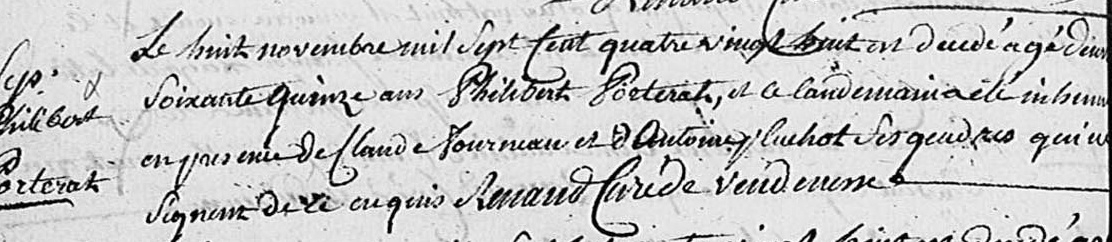 Le huit novembre mil Sept Cent quatre vingt huit est decedé agé d'env
Sep.
Philibert
Porterat
Soixante quinze ans Philibert Porterat, et le landemain a été inhumé
en presence de Claude Tourneau et d'Antoine Pluchot Ses gendres qui n
Signent de ce enquis Renaud Curé de Vendenesse